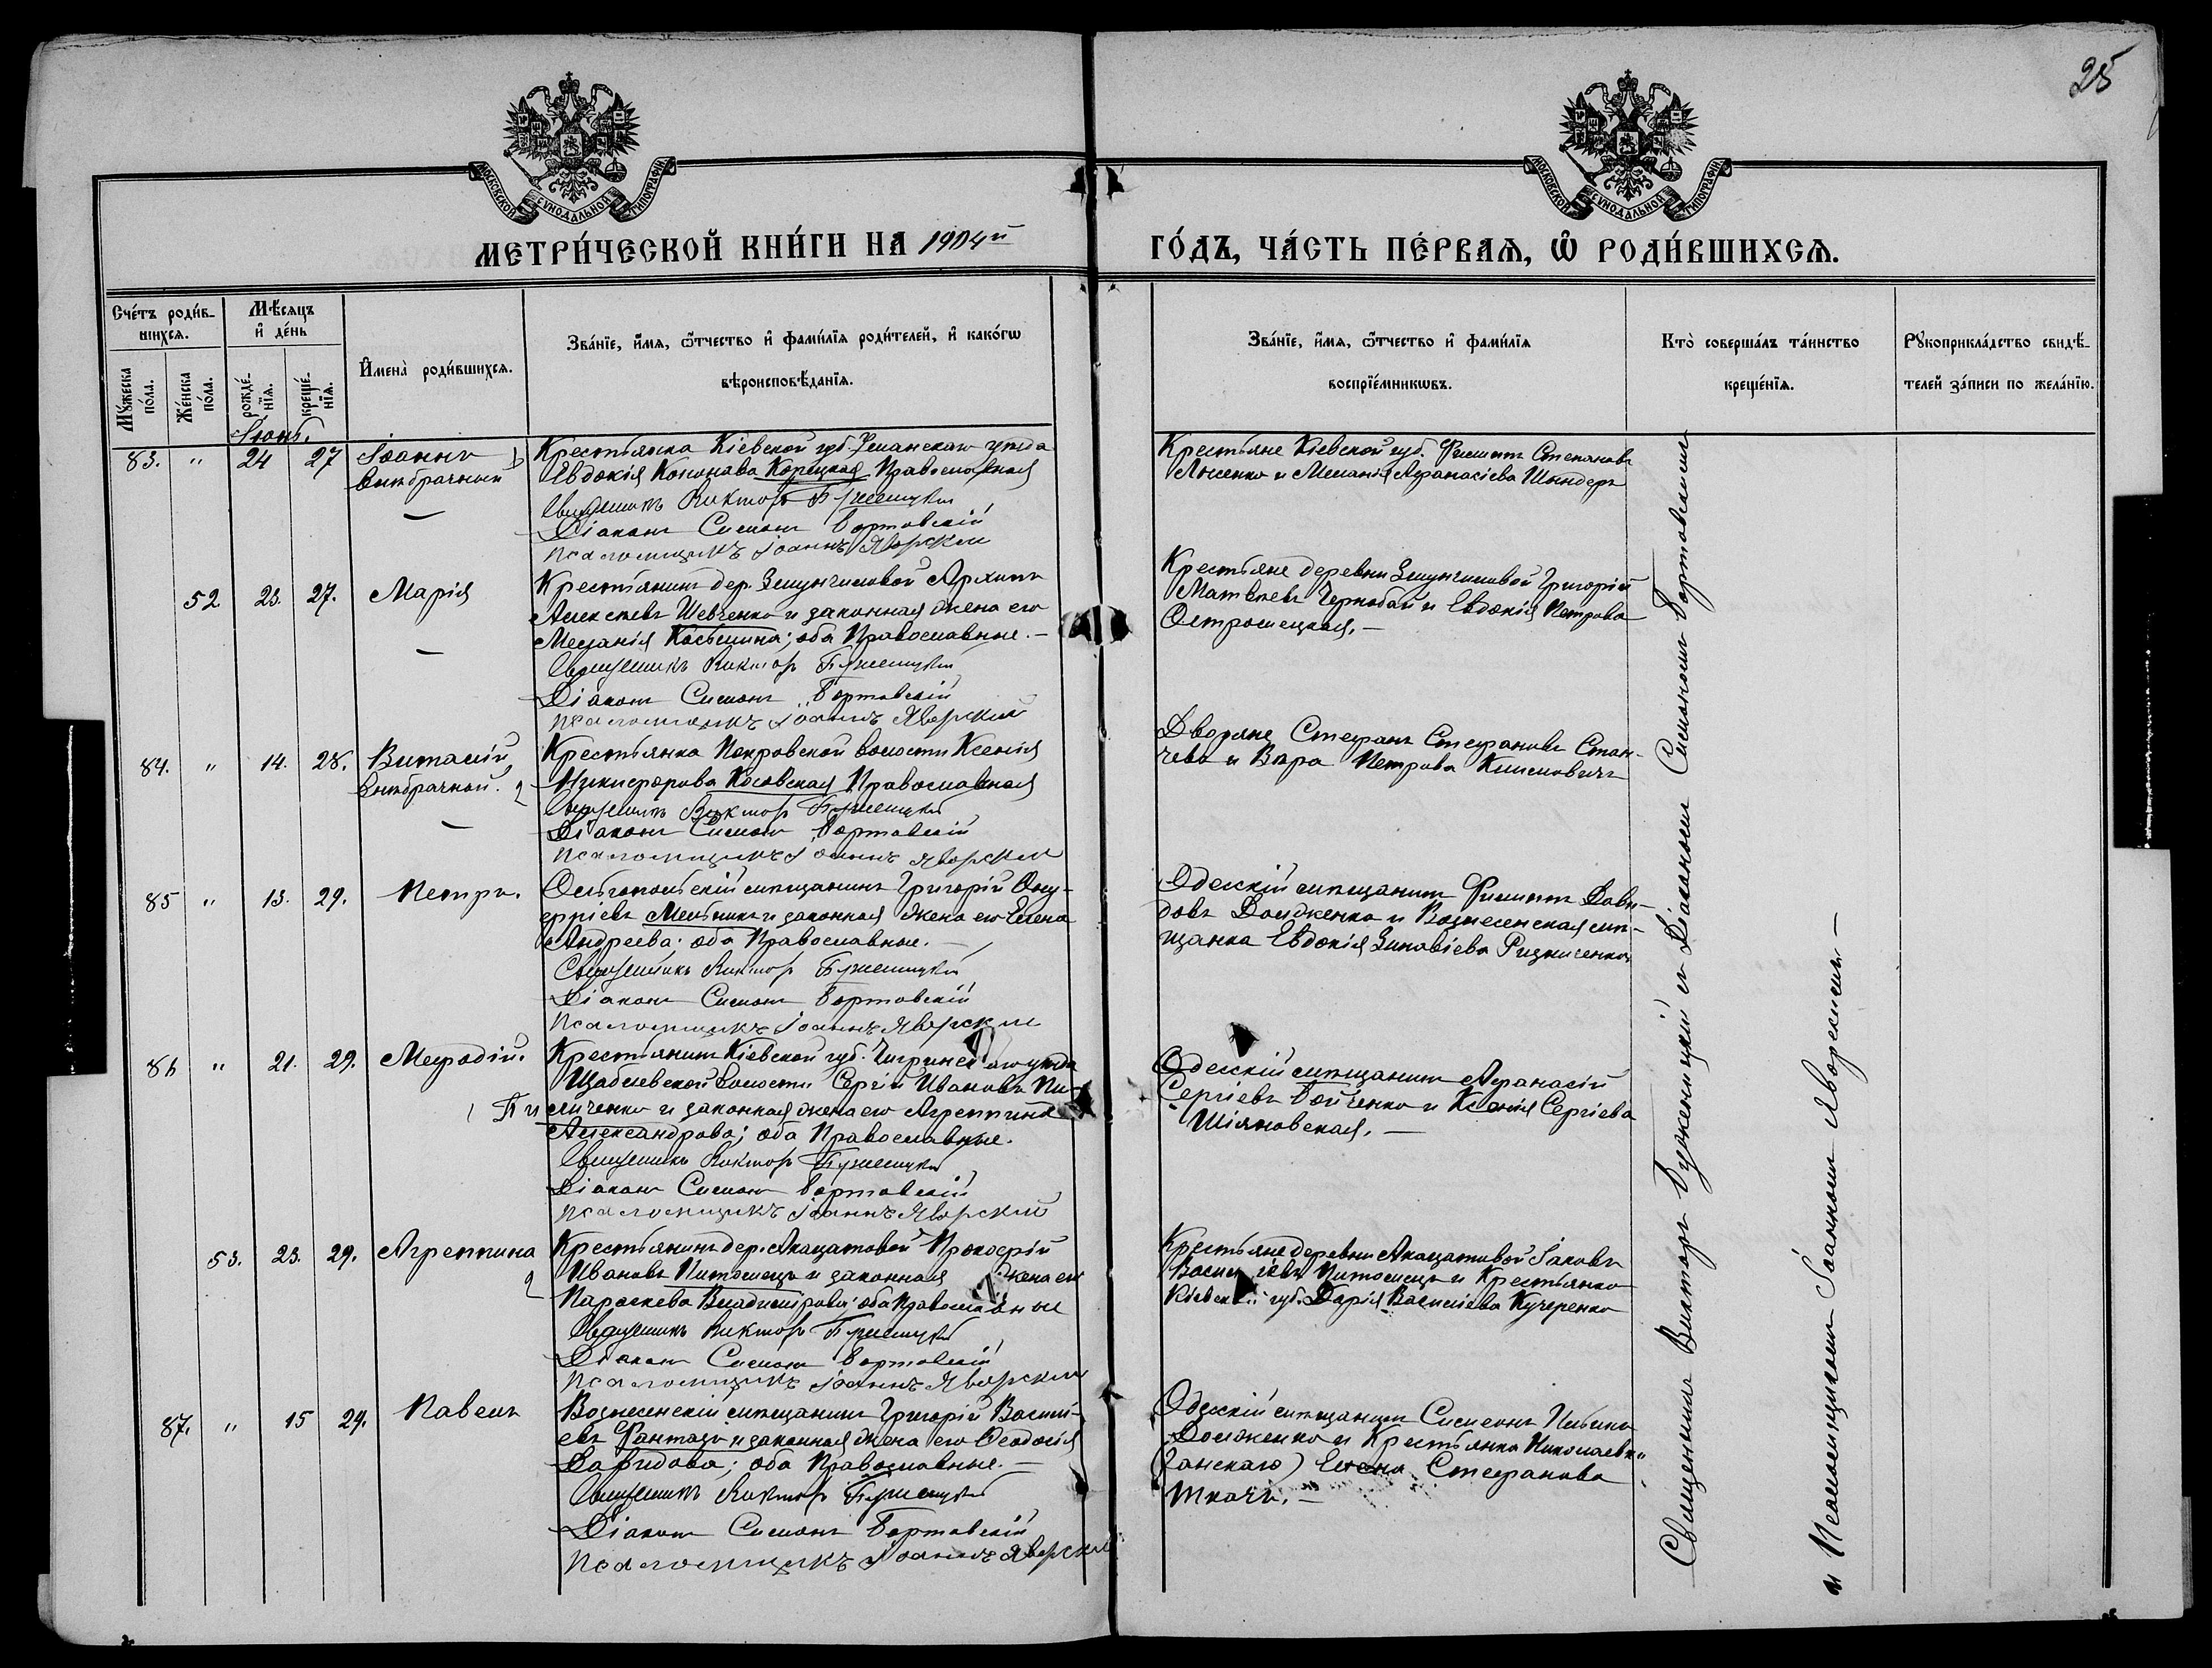 25
МОСКОВСКОЙ СѴНОДАЛЬНОЙ ТИПОГРАФІИ
МОСКОВСКОЙ СѴНОДАЛЬНОЙ ТИПОГРАФІИ
МЕТРИ́ЧЕСКОЙ КНИ́ГИ НА 1904й
ГО́ДЪ, ЧА́СТЬ ПЕ́РВАѦ, Ѽ РОДИ́ВШИХСѦ.
Сче́тъ роди́в-
шихсѧ.
Мѣ́сѧцъ
и҆ де́нь
Мꙋ́жеска
по́ла.
Же́нска
по́ла.
рожде́-
нїѧ.
креще́-
нїѧ.
И҆мена̀ роди́вшихсѧ.
Зва́нїе, и҆́мѧ, ѻ҆́тчество и҆ фами́лїѧ роди́телей, и҆ како́гѡ
вѣроисповѣ́данїѧ.
Зва́нїе, и҆́мѧ, ѻ҆́тчество и҆ фами́лїѧ
воспрїе́мникѡвъ.
Кто̀ соверша́лъ та́инство
креще́нїѧ.
Рꙋкоприкла́дство свидѣ́-
телей за́писи по жела́нїю.
Іюнь.
83. " 24 27 Іоаннъ внѣбрачный
Крестьянка Кіевской губ. Уманскаго уѣзда
Евдокія Кононова Корецкая Православная
Священникъ Викторъ Бужеицкій
Діаконъ Симонъ Бортовскій
Псаломщикъ Іоаннъ Яворскій
Крестьяне Кіевской губ. Филиппъ Степановъ
Лысенко и Меланія Афанасіева Шиндеръ
52 23. 27. Марія
Крестьянинъ дер. Архипъ
Алексѣевъ Шевченко и законная жена его
Меланія Касьянова; оба Православные.-
Священникъ Викторъ Бужеицкій
Діаконъ Симонъ Бортовскій
Псаломщикъ Іоаннъ Яворскій
Крестьяне деревни Григорій
Матвѣевъ Чернобай и Евдокія Петрова
Остромецкая.-
84. " 14. 28. Виталій, внѣбрачной.
Крестьянка Покровской волости Ксенія
Никифорова Косовская Православная
Священникъ Викторъ Бужеицкій
Діаконъ Симонъ Бортовскій
Псаломщикъ Іоаннъ Яворскій
Дворяне Стефанъ Стефановъ Стан-
чевъ и Вѣра Петрова Климовичъ
85 " 13. 29. Петръ.
Ольгопольскій мѣщанинъ Григорій Ону-
фріевъ Мельникъ и законная жена его Елена
Андреева; оба Православные.-
Священникъ Викторъ Бужеицкій
Діаконъ Симонъ Бортовскій
Псаломщикъ Іоаннъ Яворскій
Одесскій мѣщанинъ Филиппъ Дави-
довъ Долженко и Вознесенская мѣ-
щанка Евдокія Зиновіева Ризниченко
86 " 21. 29. Мефодій.
Крестьянинъ Кіевской губ. Чигринскаго уѣзда
Шабелевской волости Сергій Ивановъ Пи-
личенко и законная жена его Агреппина
Александрова; оба Православные.
Священникъ Викторъ Бужеицкій
Діаконъ Симонъ Бортовскій
Псаломщикъ Іоаннъ Яворскій
Одесскій мѣщанинъ Афанасій
Сергіевъ Бойченко и Ксенія Сергіева
Шіяновская.-
53. 23. 29. Агреппина
Крестьянинъ дер. Акацатовой Прокофій
Ивановъ Питомецъ и законная жена его
Параскева Владимірова; оба Православные
Священникъ Викторъ Бужеицкій
Діаконъ Симонъ Бортовскій
Псаломщикъ Іоаннъ Яворскій
Крестьяне деревни Акацатовой Іаковъ
Василіевъ Питомецъ и Крестьянка
Кіевской губ. Дарія Василіева Кучеренко
87. " 15 29. Павелъ
Вознесенскій мѣщанинъ Григорій Василі-
евъ Фантазъ и законная жена его Ѳеодосія
Давидова; оба Православные.-
Священникъ Викторъ Бужеицкій
Діаконъ Симонъ Бортовскій
Псаломщикъ Іоаннъ Яворскій
Одесскій мѣщанинъ Симеонъ
Долженко и Крестьянка
Елена Стефанова
Ткачъ.-
Священникъ Викторъ Бужеицкій съ Діакономъ Симономъ Бортовскимъ
и Псаломщикомъ Іоанномъ Яворскимъ.-